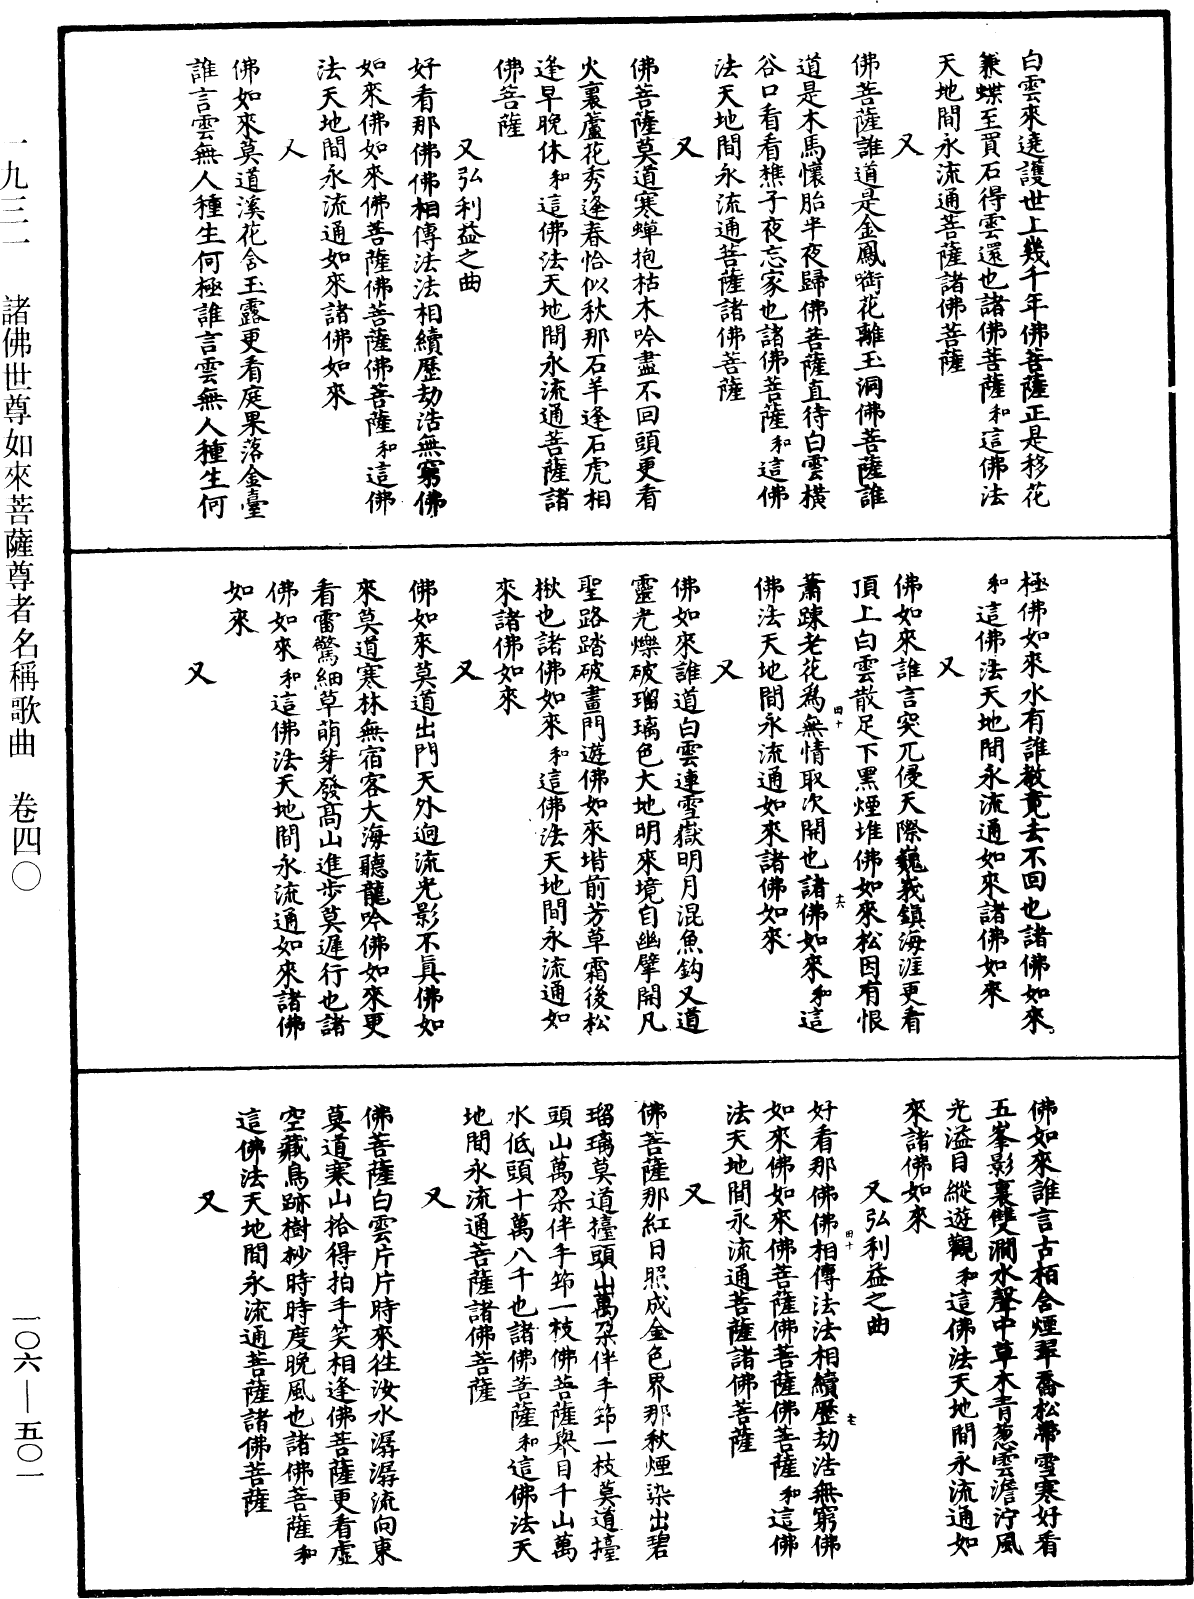 白雲來遶護世上幾千年佛菩薩正是移花
兼蝶至買石得雲還也諸佛菩薩和這佛法
天地間永流通菩薩諸佛菩薩
又
佛菩薩誰道是金鳳啣花離玉洞佛菩薩誰
道是木馬懷胎半夜歸佛菩薩直待白雲橫
谷口看看樵子夜忘家也諸佛菩薩和這佛
法天地間永流通菩薩諸佛菩薩
又
佛菩薩莫道寒蟬抱枯木吟盡不回頭更看
火裏蘆花秀逢春恰似秋那石羊逢石虎相
逢早晚休和這佛法天地間永流通菩薩諸
佛菩薩
又弘利益之曲
好看那佛佛相傳法法相續歷劫浩無窮佛
如來佛如來佛菩薩佛菩薩佛菩薩和這佛
法天地間永流通如來諸佛如來
又
佛如來莫道溪花含玉露更看庭果落金臺
誰言雲無人種生何極誰言雲無人種生何
極佛如來水有誰教竟去不回也諸佛如來
和這佛法天地間永流通如來諸佛如來
又
佛如來誰言突兀侵天際巍峩鎮海涯更看
頂上白雲散足下黑煙堆佛如來松因有恨
蕭踈老花爲無情取次開也諸佛如來和這
佛法天地間永流通如來諸佛如來
又
佛如來誰道白雲連雪嶽明月混魚鈎又道
靈光爍破瑠璃色大地明來境自幽擘開凡
聖路踏破畫門遊佛如來堦前芳草霜後松
楸也諸佛如來和這佛法天地間永流通如
來諸佛如來
又
佛如來莫道出門天外逈流光影不真佛如
來莫道寒林無宿客大海聽龍吟佛如來更
看雷驚細草萌芽發高山進步莫遲行也諸
佛如來和這佛法天地間永流通如來諸佛
如來
又
佛如來誰言古栢含煙翠喬松帶雪寒好看
五峯影裏雙澗水聲中草木青葱雲澹泞風
光溢目縱遊觀和這佛法天地間永流通如
來諸佛如來
又弘利益之曲
好看那佛佛相傳法法相續歷劫浩無窮佛
如來佛如來佛菩薩佛菩薩佛菩薩和這佛
法天地間永流通菩薩諸佛菩薩
又
佛菩薩那紅日照成金色界那秋煙染出碧
瑠璃莫道擡頭山萬朶伴手筇一枝莫道擡
頭山萬朶伴手筇一枝佛菩薩舉目千山萬
水低頭十萬八千也諸佛菩薩和這佛法天
地間永流通菩薩諸佛菩薩
又
佛菩薩白雲片片時來往汝水潺潺流向東
莫道寒山拾得拍手笑相逢佛菩薩更看虛
空藏鳥跡樹杪時時度晚風也諸佛菩薩和
這佛法天地間永流通菩薩諸佛菩薩
又
一九三一 諸佛世尊如來菩薩尊者名稱歌曲 卷四〇 一〇六—五〇一